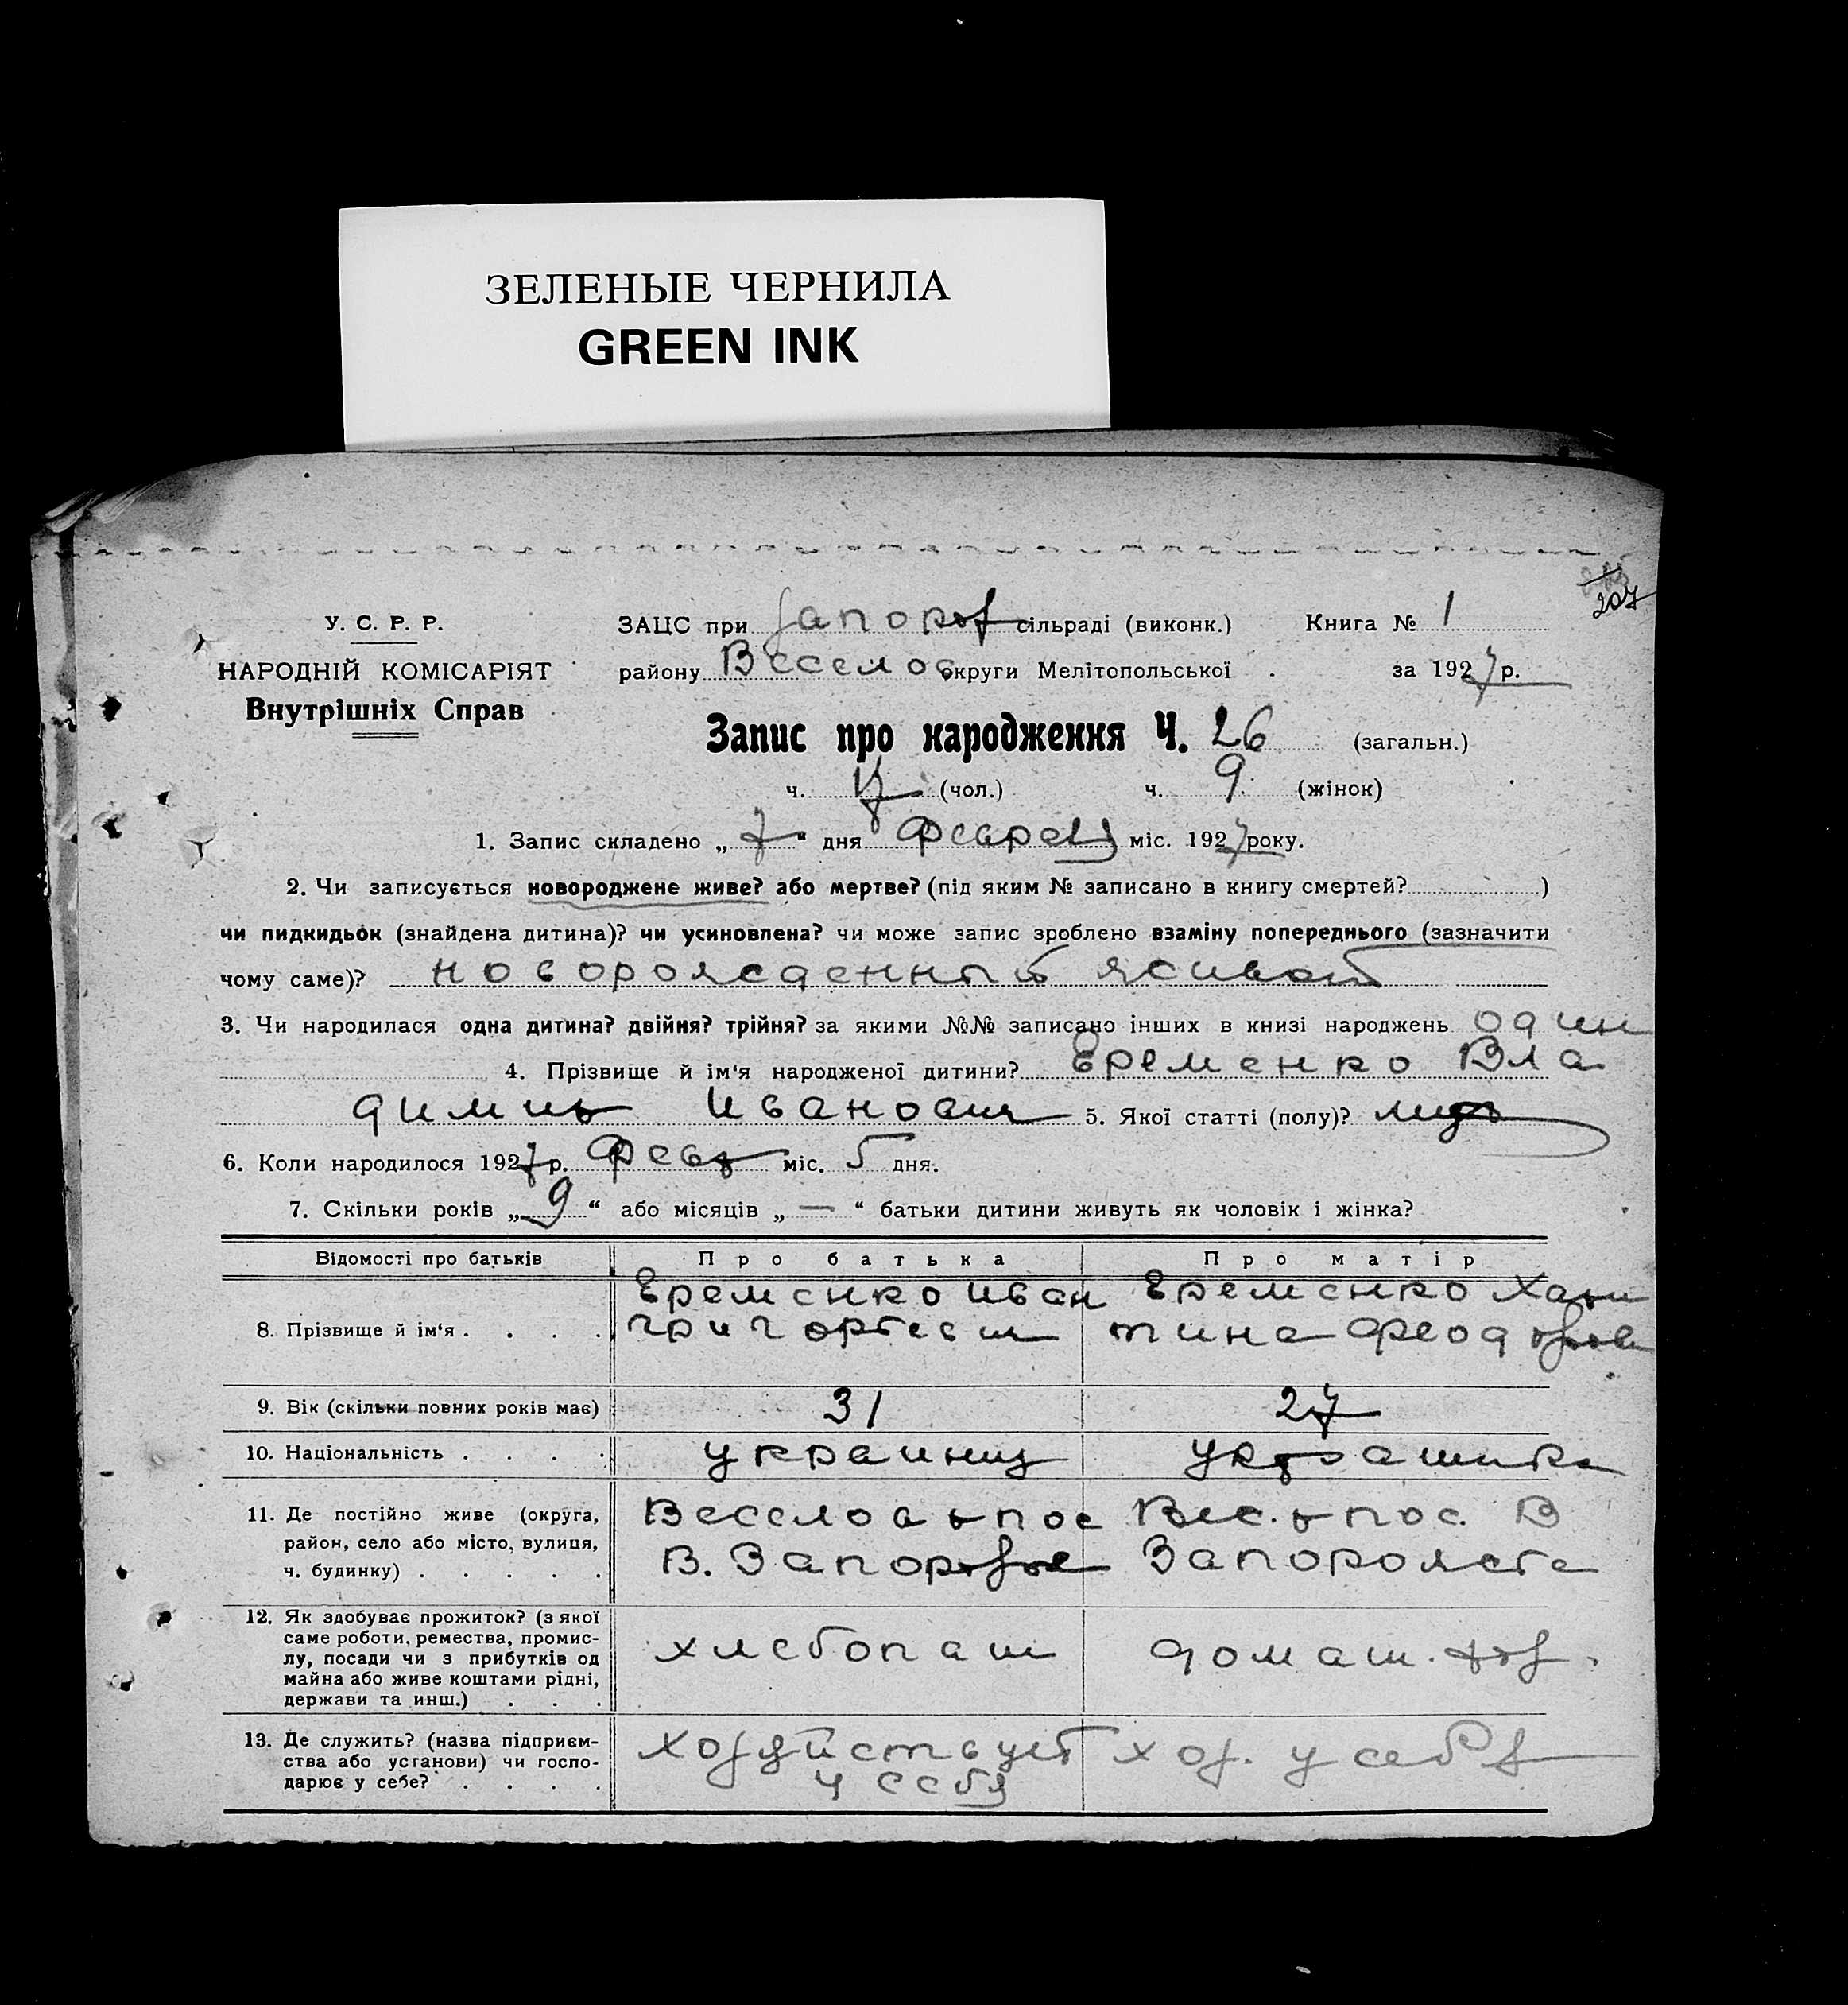 ЗЕЛЕНЫЕ ЧЕРНИЛА
GREEN INK
207
У. С. Р. Р.
ЗАЦС при Запорож сільраді (виконк.) Книга № 1
НАРОДНІЙ КОМІСАРІЯТ
району Веселов округи Мелітопольської за 1927 р.
Внутрішніх Справ
Запис про народження Ч. 26 (загальн.)
ч. 17 (чол.) ч. 9 (жінок)
1. Запис складено „ 7 “ дня Февраля міс. 1927 року.
2. Чи записується новороджене живе? або мертве? (під яким № записано в книгу смертей? )
чи пидкидьок (знайдена дитина)? чи усиновлена? чи може запис зроблено взаміну попереднього (зазначити
чому саме)? новорожденный живой
3. Чи народилася одна дитина? двійня? трійня? за якими №№ записано інших в книзі народжень один
4. Прізвище й ім‘я народженої дитини? Еременко Вла
димир Иванович 5. Якої статті (полу)? муж
6. Коли народилося 1927 р. Февр міс. 5 дня.
7. Скільки років „ 9 “ або місяців „ — “ батьки дитини живуть як чоловік і жінка?
Відомості про батьків Про батька Про матір
Еременко Иван Еременко Хари
8. Прізвище й ім‘я . . . . Григорьевич тина Феодоров
9. Вік (скільки повних років має) 31 27
10. Національність . . . . украинец украинка
11. Де постійно живе (округа, Веселов р пос Вес. р пос. В
район, село або місто, вулиця, В. Запорожье Запорожье
ч. будинку) . . . . .
12. Як здобуває прожиток? (з якої
саме роботи, ремества, промис-
лу, посади чи з прибутків од хлебопаш домаш. хоз.
майна або живе коштами рідні,
держави та инш.) . . .
13. Де служить? (назва підприєм- хозяйствует хоз. у себя
ства або установи) чи госпо- у себя
дарює у себе? . . . .